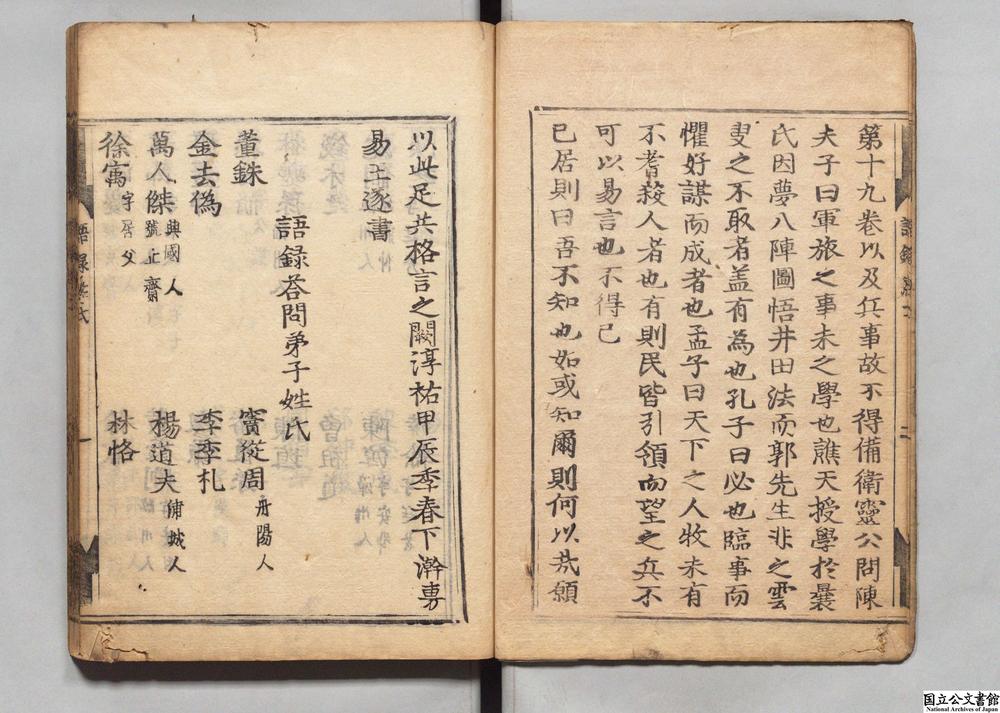 第十九卷以及兵事故不得備衛靈公問陳
夫子曰軍旅之事未之學也譙天授學於㬮
氏因夢八陣圖悟井田法而郭先生非之雲
叟之不取者盖有為也孔子曰必也臨事而
懼好謀而成者也孟子曰天下之人收未有
不耆殺人者也有則民皆引領而望之兵不
可以易言也不得已
已居則曰吾不知也如或知爾則何以㢤願
以此足共格言之闕淳祐甲辰季春下澣專
易王遂書
語錄荅問弟子姓氏
董銖
竇從周 丹陽人
金去偽
李季札
萬人傑 興國人 號止齋
楊道夫 浦城人
徐寓 字居父
林恪
一
国立公文書館
National Archives of Japan